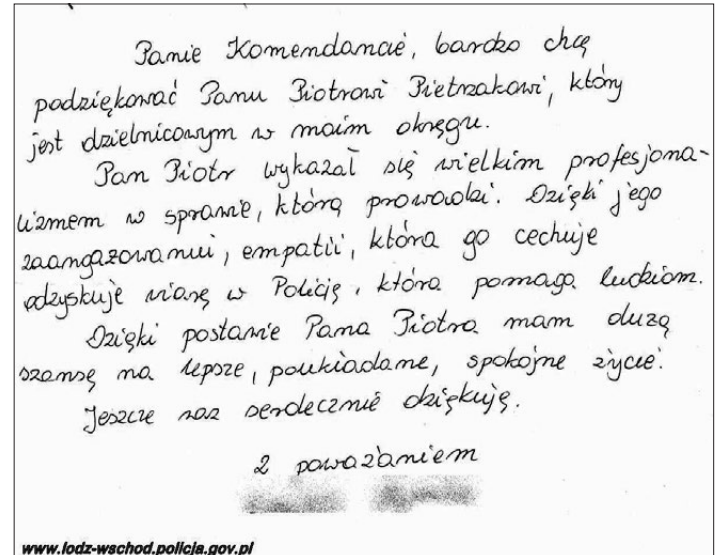 Panie Komendancie, bardzo chcę
podziękować Panu Piotrowi Pietrzakowi, który
jest dzielnicowym w moim okręgu.
Pan Piotr wykazał się wielkim profesjona-
lizmem w sprawie, którą prowadzi. Dzięki jego
zaangażowaniu, empatii, która go cechuje
odzyskuję wiarę w Policję, która pomaga ludziom.
Dzięki postawie Pana Piotra mam dużą
szansę na lepsze, poukładane, spokojne życie.
Jeszcze raz serdecznie dziękuję.
Z poważaniem
www.lodz-wschod.policja.gov.pl